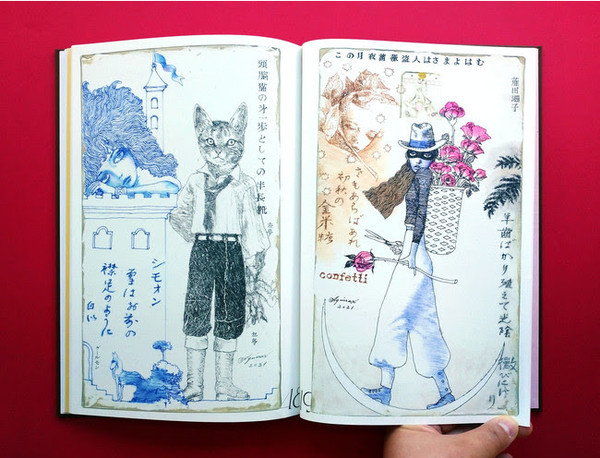 頭脳猫の才一歩としての半長靴
シモオン
雪はお前の
襟足のように
白い
グールモン
2021
この月夜薔薇盗人はさまよはむ
さもあらばあれ
初秋の
金米糖
confetti
2021
ばかり殖えて光陰
黴びにけり